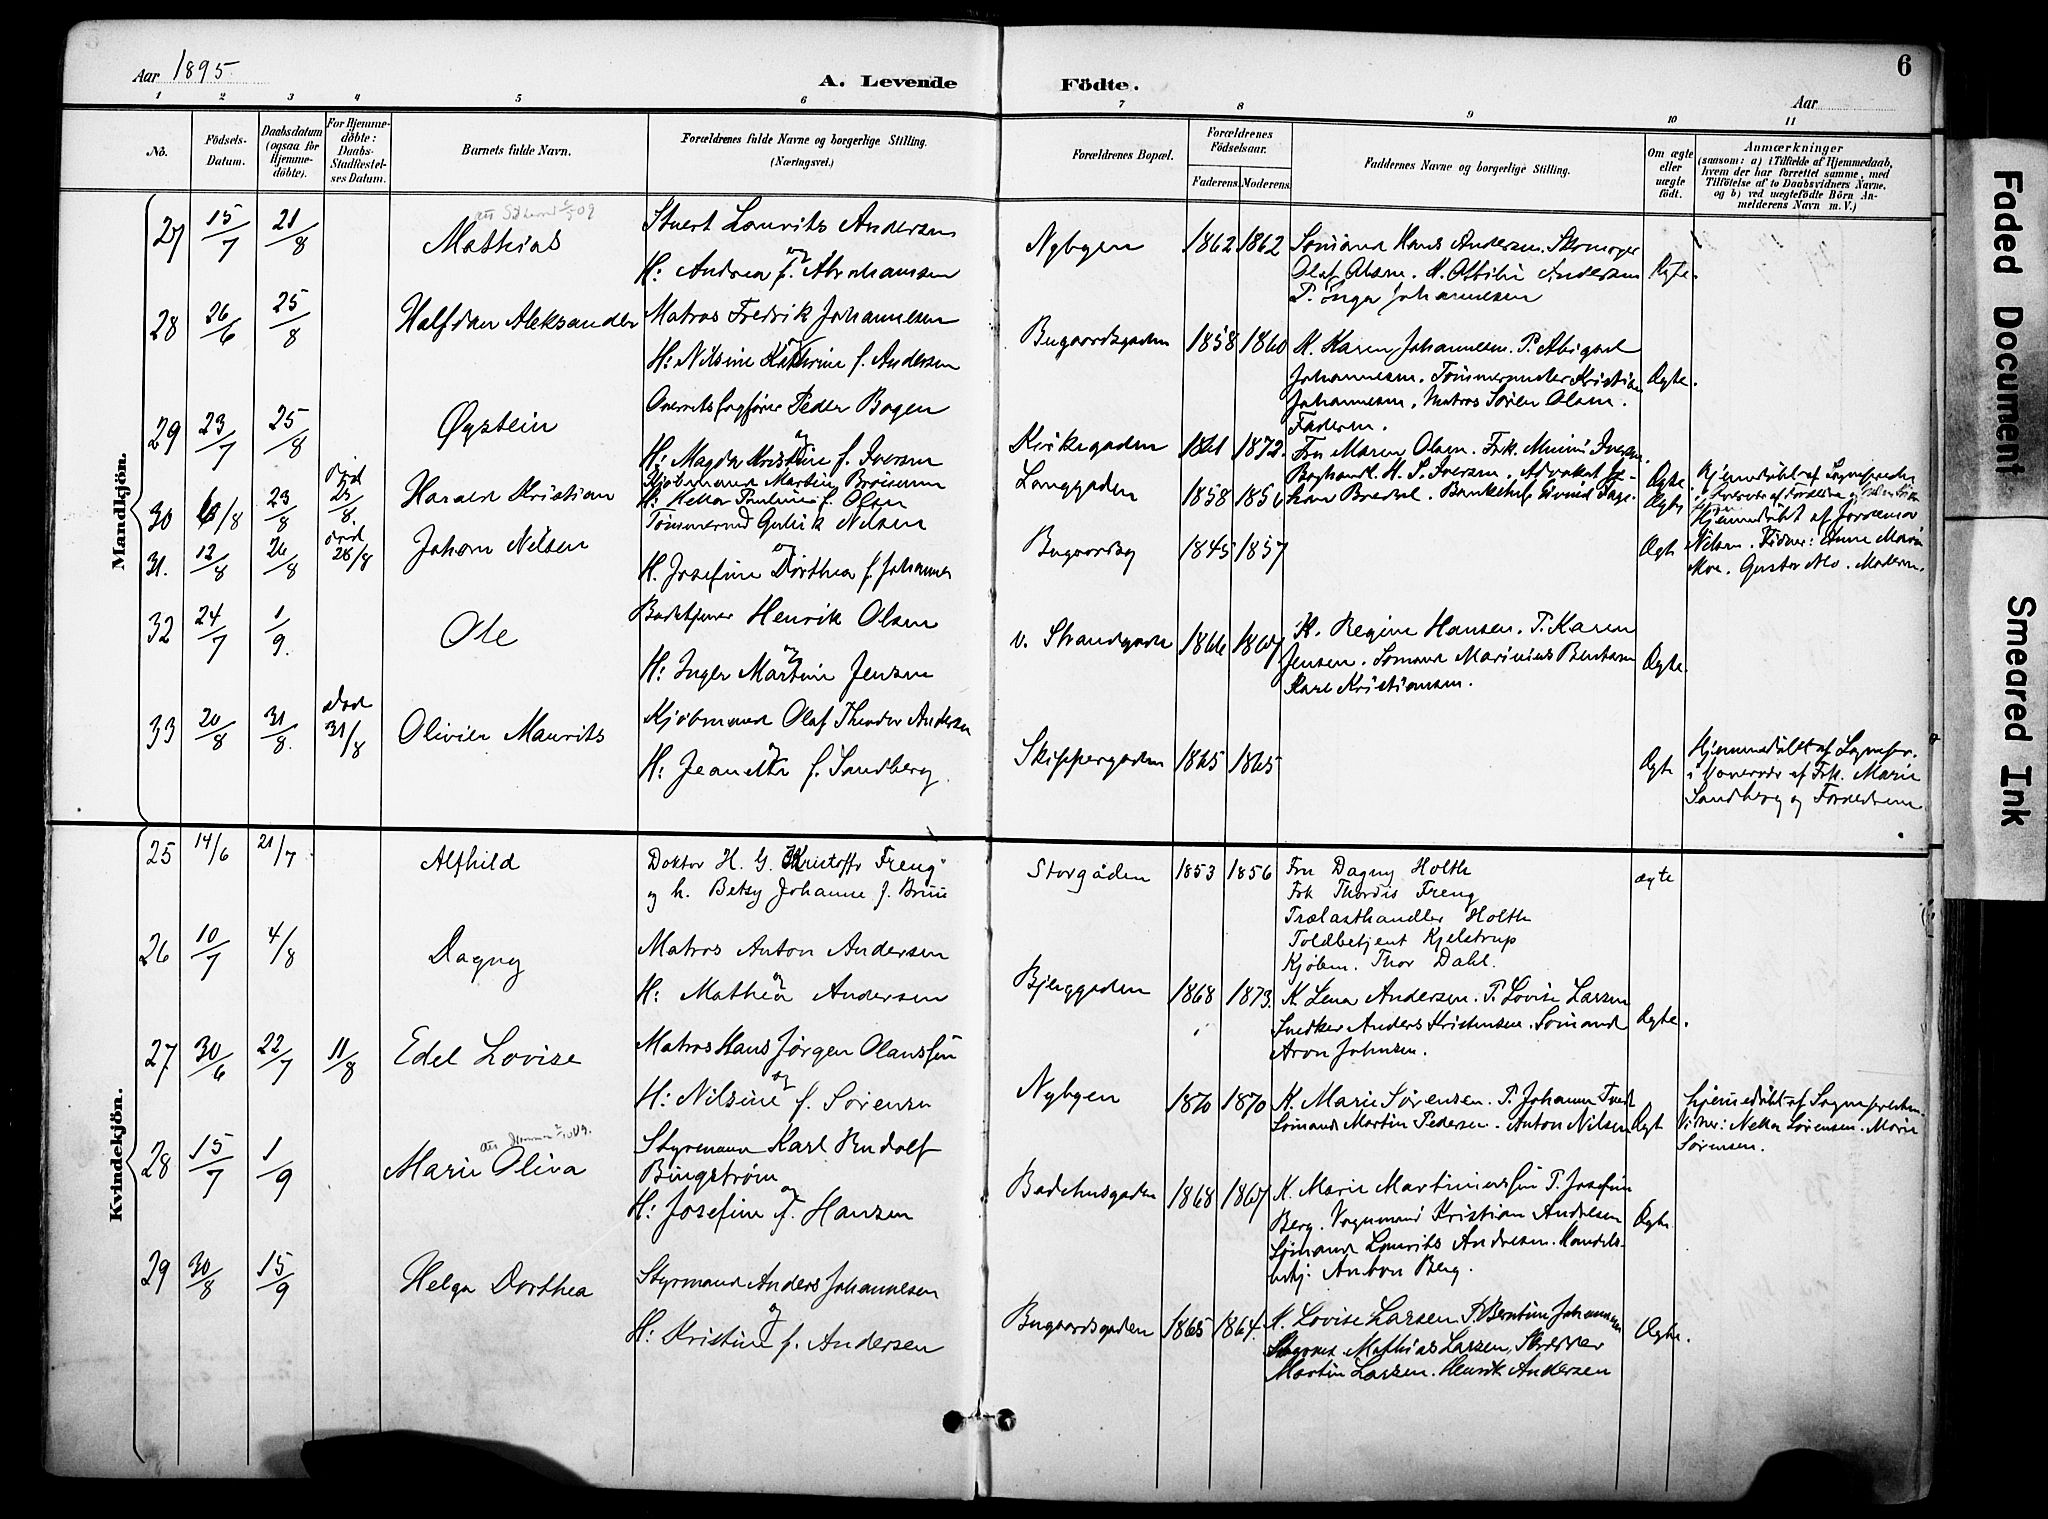 Aar 1895
A. Levende Födte.
Aar
6
1 2 3 4 5 6 7 8 9 10 11
No.
Födsels-Datum.
Daabsdatum (ogsaa for Hjemme-döbte).
For Hjemme-döbte: Daabs-Stadfæstel-ses Datum.
Barnets fulde Navn.
Forældrenes fulde Navne og borgerlige Stilling. (Næringsvei.)
Forældrenes Bopæl.
Forældrenes Födselsaar.
Faderens. Moderens.
Faddernes Navne og borgerlige Stilling.
Om ægte eller uægte födt.
Anmærkninger
(saasom: a) i Tilfælde af Hjemmedaab, hvem der har forrettet samme, med Tilföielse af to Daabsvidners Navne, og b) ved uægtefödte Börn An-melderens Navn m. V.)
Mandkjön.
27 15/7 21/8 Mathias
Stuert Laurits Andersen
og
H: Andrea f. Abrahamsen
Nybyen 1862 1862
Sømand Hans Andersen. Skomager
Olaf Olsen. K. Ottilie Andersen
P. Inga Johannesen
Ægte.
28 26/6 25/8 Halfdan Aleksander
Matros Fredrik Johannesen
H: Nilsine Kathrine f. Andersen
Bugaardsgaden 1858 1860
K. Karen Johannesen. P. Abigael
Johannesen. Tømmermester Kristian
Johannesen. Matros Søren Olsen.
Faderen.
Ægte.
29 23/7 25/8 Øystein
Overretssagfører Peder Bogen
og
H: Magda Kristine f. Iversen
Kirkegaden 1861 1872.
Fru Maren Olsen. Frk. Minni Iversen.
Boghandl. H. S. Iversen. Advokat
Ægte.
30 6/8 23/8 død 23/8 Harald Kristian
Kjøbmand Martin
H: Petra Pauline f. Olsen
Langgaden 1858 1856
Ægte
Hjemmedøbt af Sognepresten
31. 12/8 26/8 død 28/8 Johan Nilsen
Tømmermd Gulrik Nilsen
og
H. Josefine Dorthea f. Johannes
Bugaardsg 1845 1857
Ægte
Hjemmedøbt af Jordemor
Nilsen. Vidner: Anne Marie
Moe. Gustav Moe. Moderen.
32 24/7 1/9. Ole
Badetjener Henrik Olsen
og
H: Inger Martine Jensen
v. Strandgade 1866 1867
K. Regine Hansen. P. Karen
Jensen. Sømand Marinius Berntsen
Karl Kristiansen.
Ægte
33 20/8 31/8. død 31/8 Olivier Maurits
Kjøbmand Olaf Theodor Andersen
og
H: Jeanette f. Sandberg.
Skippergaden 1865 1865
Ægte
Hjemmedøbt af Sognepr.
i Nærvær af Frk. Marie
Sandberg og Forældrene
Kvindekjön.
25 14/6 21/7 Alfhild
Doktor H. G. Kristoffer Freng
og h. Betsy Johanne f. Bruu
Storgåden 1853 1856
Fru Dagny Holth
Frk Thordis Freng
Trælasthandler Holth
Toldbetjent Kjelstrup
Kjøbm. Thor Dahl.
ægte
26 10/7 4/8 Dagny
Matros Anton Andersen
og
H: Mathea Andersen
Bjerggaden 1868 1873.
K. Lena Andersen. P. Lovise Larsen
Snedker Anders Kristensen. Sømand
Aron Johnsen.
Ægte.
27 30/6 22/7 11/8 Edel Lovise
Matros Hans Jørgen Olaussen
og
H: Nilsine f. Sørensen
Nybyen 1870 1870
K. Marie Sørensen. P. Johanne Tvedt
Sømand Martin Pedersen. Anton Nilsen
Ægte
Hjemmedøbt af Sognepresten.
Vidner: Netta Sørensen. Marie
Sørensen.
28 15/7 1/9 Marie Oliva
Styrmann Karl Rudolf
Bingstrøm
og
H: Josefine f. Hansen
Badehusgaden 1868 1867
K. Marie Martiniussen P. Josefine
Berg. Vognmand Kristian Andresen
Sømand Laurits Andresen. Handels-
betj. Anton Berg.
Ægte
29 30/8 15/9 Helga Dorthea
Styrmand Anders Johannesen
og
H: Kristine f. Andersen
Bugaardsgaden 1865 1864.
K. Lovise Larsen P. Berntine Johannesen
Mathias Larsen. Skræder
Martin Larsen. Henrik Andersen
Ægte.
Faded Document
Smeared Ink